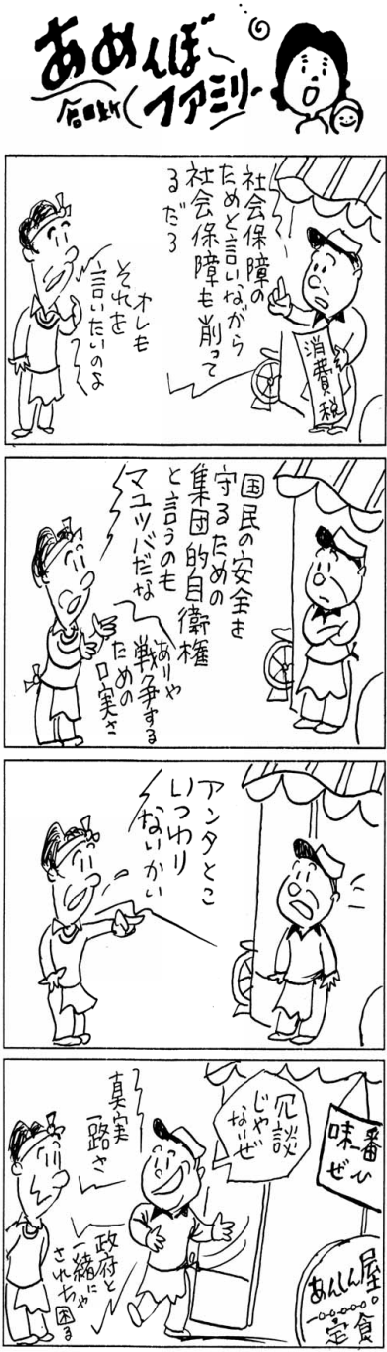 あめんぼ
ファミリー
社会保障の
ためと言いながら
社会保障も削って
るだろ
消費税
オレも
それを
言いたいのよ
国民の安全を
守るための
集団的自衛権
と言うのも
マユツバだな
ありゃ
戦争する
ための
口実さ
アンタとこ
いつわり
ないかい
冗談
じゃ
ないぜ
真実
一路さ
政府と
一緒に
されちゃ
困る
味一番
ぜひ
あんしん屋
定食